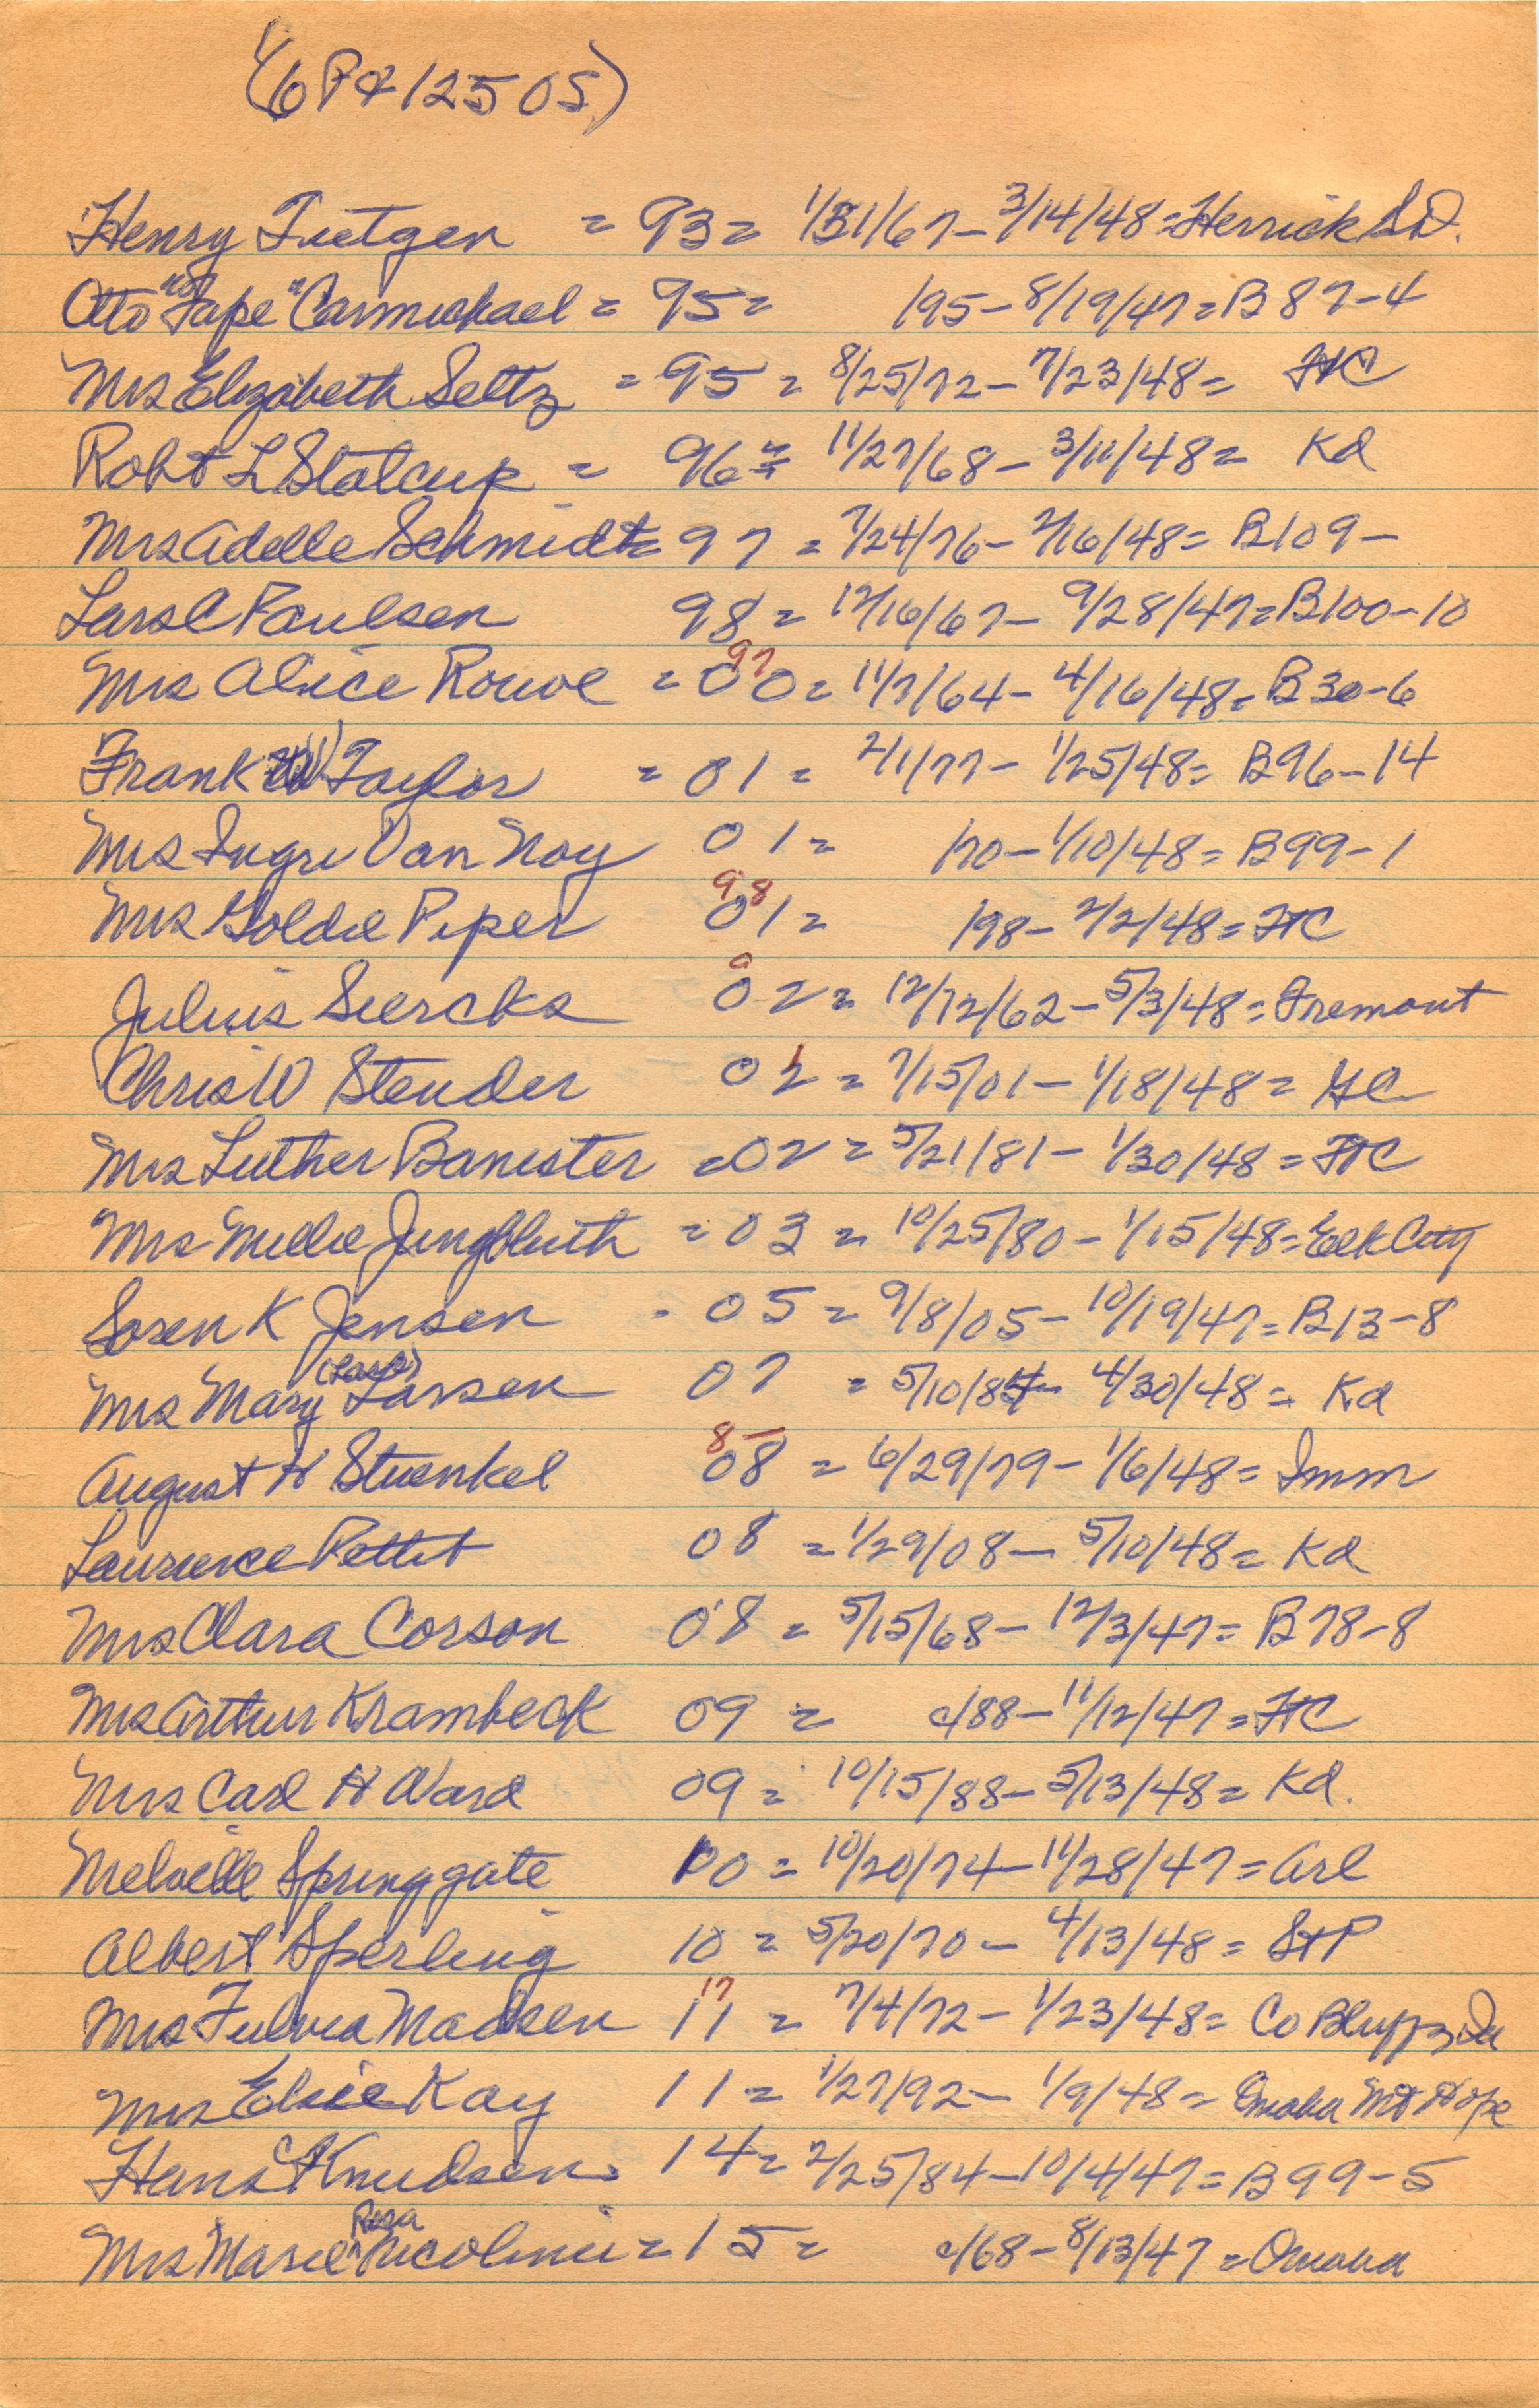 (6P&12505)
Henry Tietgen = 93 = 1/31/67 - 3/14/48 = Herrick S.D.
Otto "Pape" Carmichael = 95 = 195 - 8/19/47 = B 87-4
Mrs Elizabeth Seltz = 95 = 8/25/72 - 7/23/48 = FtC
Robt L Stalcup = 96 = 11/27/68 - 3/11/48 = Kd
Mrs Adelle Schmidt = 97 = 7/24/76 - 2/16/48 = B109-
Lars C Paulsen 98 = 12/16/67 - 9/28/47 = B100-10
97
Mrs Alice Rouwe = 00 = 11/7/64 - 4/16/48 = B30-6
Frank Taylor = 01 = 2/1/77 - 1/25/48 = B96-14
Mrs Ingri Van Noy 01 = 170 - 1/10/48 = B99-1
98
Mrs Goldie Piper 01 = 198 - 2/2/48 = FtC
Julius Siercks 02 = 12/12/62 - 5/3/48 = Fremont
Chris W Stender 02 = 7/15/01 - 1/18/48 = GC
Mrs Luther Banister = 02 = 5/21/81 - 1/30/48 = FtC
Mrs Millie Jungbluth = 03 = 10/25/80 - 1/15/48 = Elk City
Soren K Jensen - 05 = 9/8/05 - 10/19/47 = B13-8
(Lars)
Mrs Mary Larsen 07 = 5/10/84 - 4/30/48 = Kd
8-
August H Stuenkel 08 = 6/29/79 - 1/6/48 = Imm
Laurence Pettit 08 = 1/29/08 - 5/10/48 = Kd
Mrs Clara Corson 08 = 5/15/68 - 12/3/47 = B78-8
Mrs Arthur Krambeck 09 = c/88 - 11/12/47 = FtC
Mrs Carl H Ward 09 = 10/15/88 - 5/13/48 = Kd.
Melville Springgate 10 = 10/20/74 - 11/28/47 = Arl
Albert Sperling 10 = 5/20/70 - 4/13/48 = StP
17
Mrs Fulvia Madsen 11 = 7/4/72 - 1/23/48 = Co Bluffs Ia
Mrs Elsie Kay 11 = 1/27/92 - 1/9/48 = Omaha Mt Hope
Hans C Knudsen 14 = 2/25/84 - 10/4/47 = B99-5
Rosa
Mrs Marie Nicolini = 15 = c/68 - 8/13/47 = Omaha